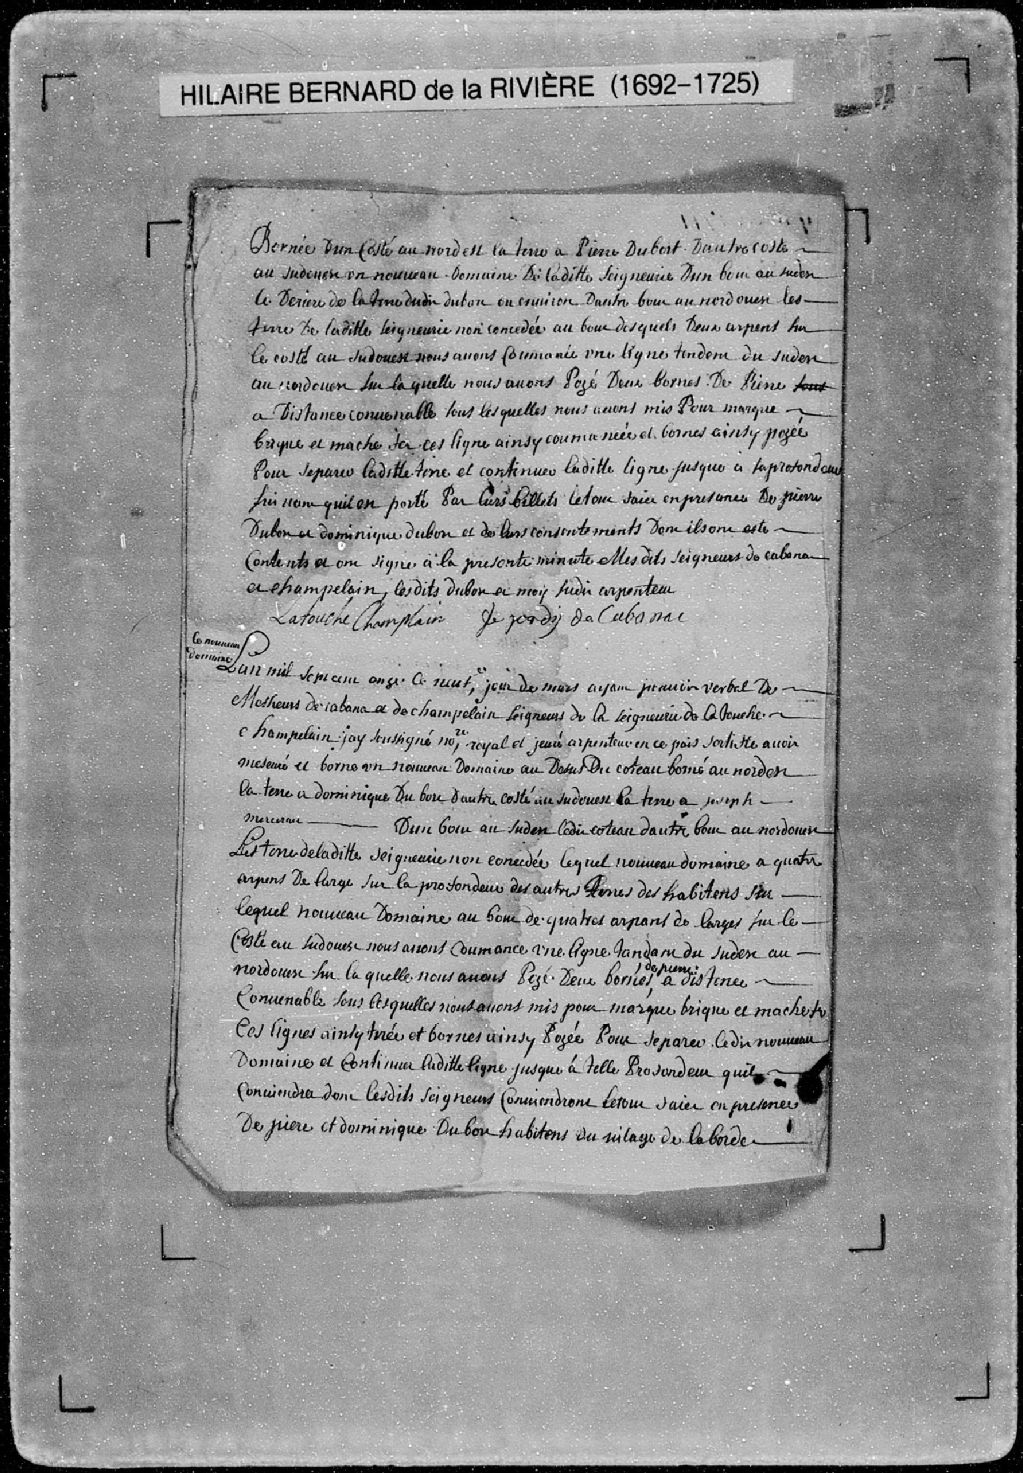 HILAIRE BERNARD de la RIVIÈRE (1692-1725)
Bornée Dun Costé au nordest la terre a Pierre Dubort Dautre costé
au sudouest un nouveau Domaine De laditte Seigneurie Dun bout au sudest
le Deriere de la terre dudit dubon ou environ Dautre bout au nordouest les
terre De laditte Seigneurie non concedée au bout desquels Deux arpens sur
le costé au sudouest nous avons Coumancée une ligne tendent du sudest
au nordouest sur la quelle nous avons Pozé Deux bornes De Pierre
a Distance convenable sous lesquelles nous avons mis Pour marque
brique et mache fer ces ligne ainsy coumancée et bornes ainsy pozée
Pour separer laditte terre et continuer laditte ligne jusque à sa profondeur
suivant quil est porté Par leurs billets letout faict en presance De pierre
Dubon et dominique dubon et de leurs consentements Dont ils ont esté
Contents et ont signé à la presente minute Mesdits Seigneurs de cabana
et champelain, lesdits dubon et moy sudit arpenteur
Latouche Champlain Je jordy de Cabanac
Le nouveau
domaine
Lan mil sept cent onze le neuf,e jour de mars ayant pouvoir verbal De
Messieurs de cabana et de champelain Seigneurs de la Seigneurie de la touche
champelain jay soussigné no,re royal et juré arpenteur en ce païs sertiffie avoir
mesuré et borné un nouveau Domaine au Desus Du coteau borné au nordest
la terre a dominique Du bon dautre costé au sudouest la terre a joseph
mercereau Dun bout au sudest ledit coteau dautre bout au nordouest
Les terre de laditte seigneurie non concedée lequel nouveau domaine a quatre
arpens De large sur la profondeur des autres terres des habitens sur
lequel nouveau Domaine au bout de quatres arpans de larges sur le
Costé au sudouest nous avons Coumancé une ligne tandant du sudest au
nordouest sur la quelle nous avons Pozé Deux bornes, de pierre a distance
Convenable sous lesquelles nous avons mis pour marque brique et mache fer
Ces lignes ainsy tirée et bornes ainsy Pozée Pour separer ledit nouveau
Domaine et Continuer laditte ligne jusque à telle Profondeur quil
Conviendra dont lesdits Seigneurs Conviendront letout faict en presence
De piere et dominique Du bon habitens du vilage de la borde